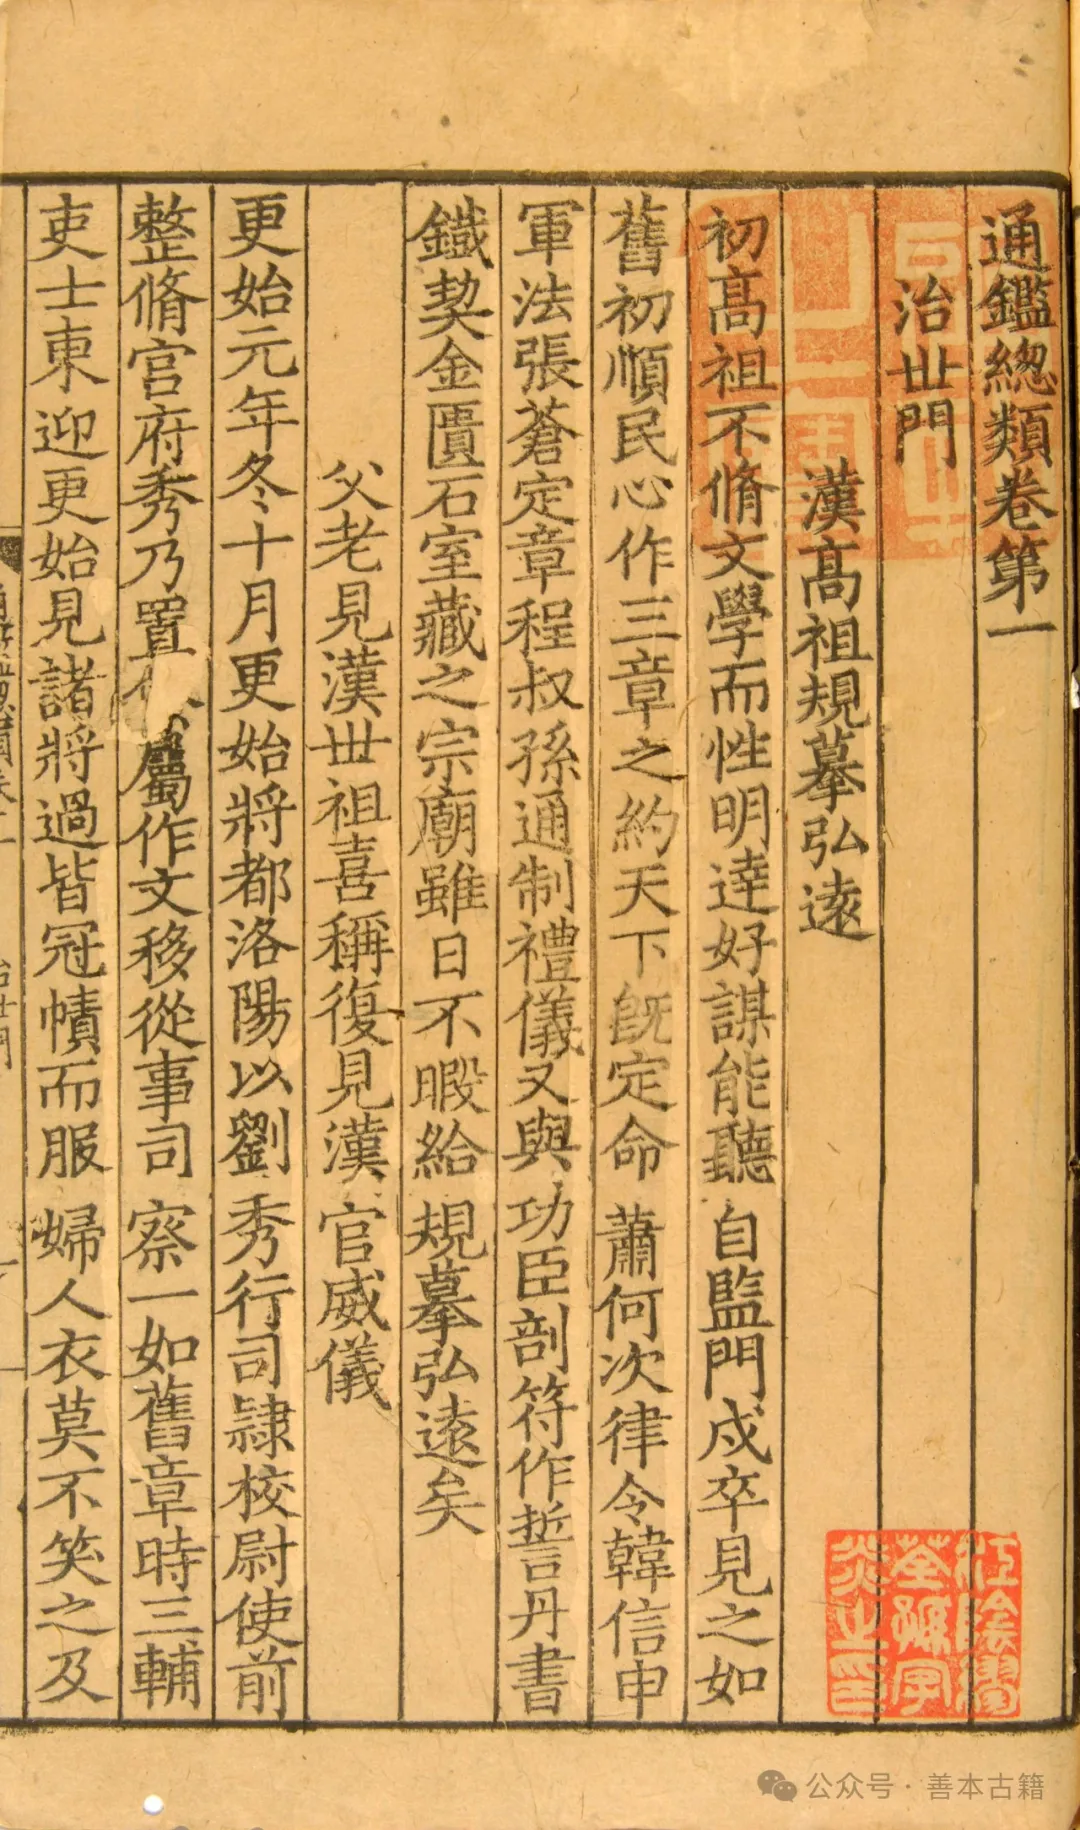 通鑑總類卷第一
治世門
漢髙祖規摹弘逺
初髙祖不脩文學而性明達好謀能聽自監門戍卒見之如
舊初順民心作三章之約天下旣定命蕭何次律令韓信申
軍法張蒼定章程叔孫通制禮儀又與功臣剖符作誓丹書
鐵契金匱石室藏之宗廟雖日不暇給規摹弘逺矣
父老見漢世祖喜稱復見漢官威儀
更始元年冬十月更始將都洛陽以劉秀行司隷校尉使前
整脩宫府秀乃置屬作文移從事司察一如舊章時三輔
吏士東迎更始見諸將過皆冠幘而服婦人衣莫不笑之及
治世門
公众号·善本古籍